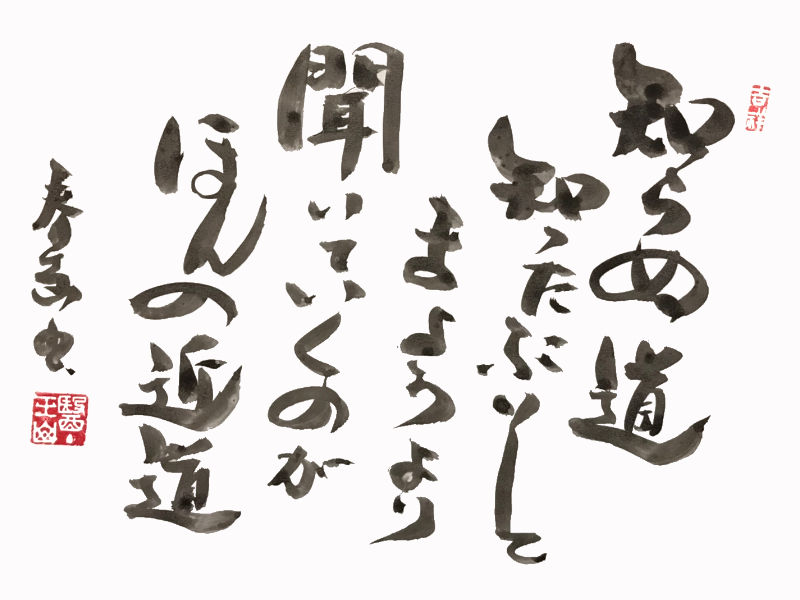 知らぬ道
知ったぶりして
まようより
聞いていくのが
ほんの近道